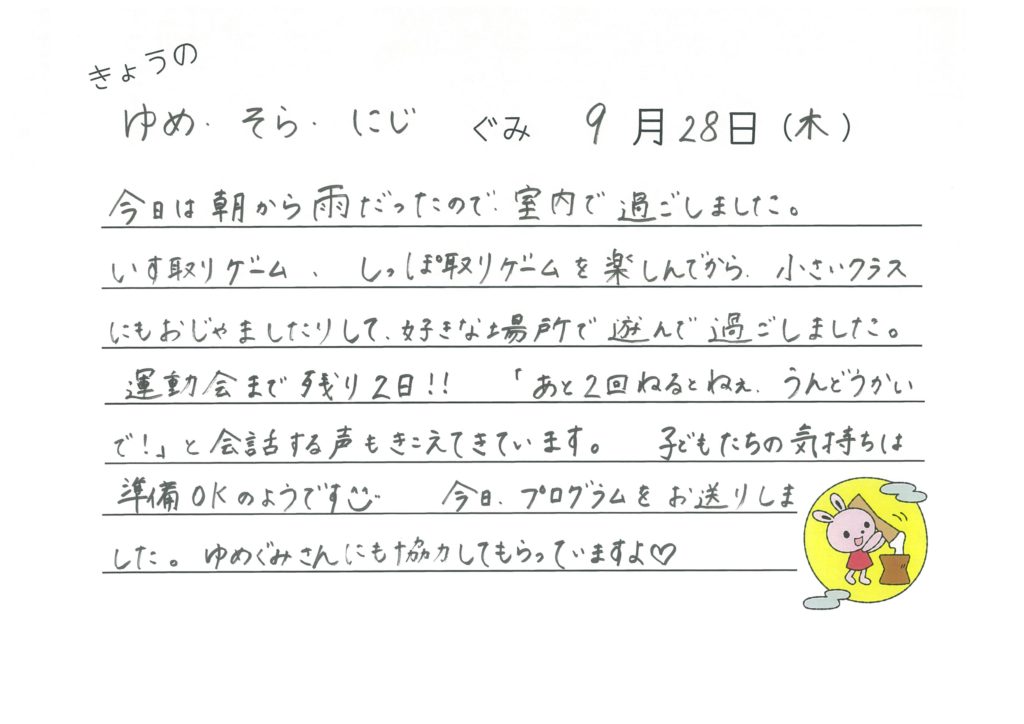 きょうの
ゆめ・そら・にじ ぐみ 9月28日(木)
今日は朝から雨だったので、室内で過ごしました。
いす取りゲーム、しっぽ取りゲームを楽しんでから、小さいクラス
にもおじゃましたりして、好きな場所で遊んで過ごしました。
運動会まで残り2日!! 「あと2回ねるとねぇ、うんどうかい
で!」と会話する声もきこえてきています。 子どもたちの気持ちは
準備OKのようです 今日、プログラムをお送りしま
した。ゆめぐみさんにも協力してもらっていますよ♡